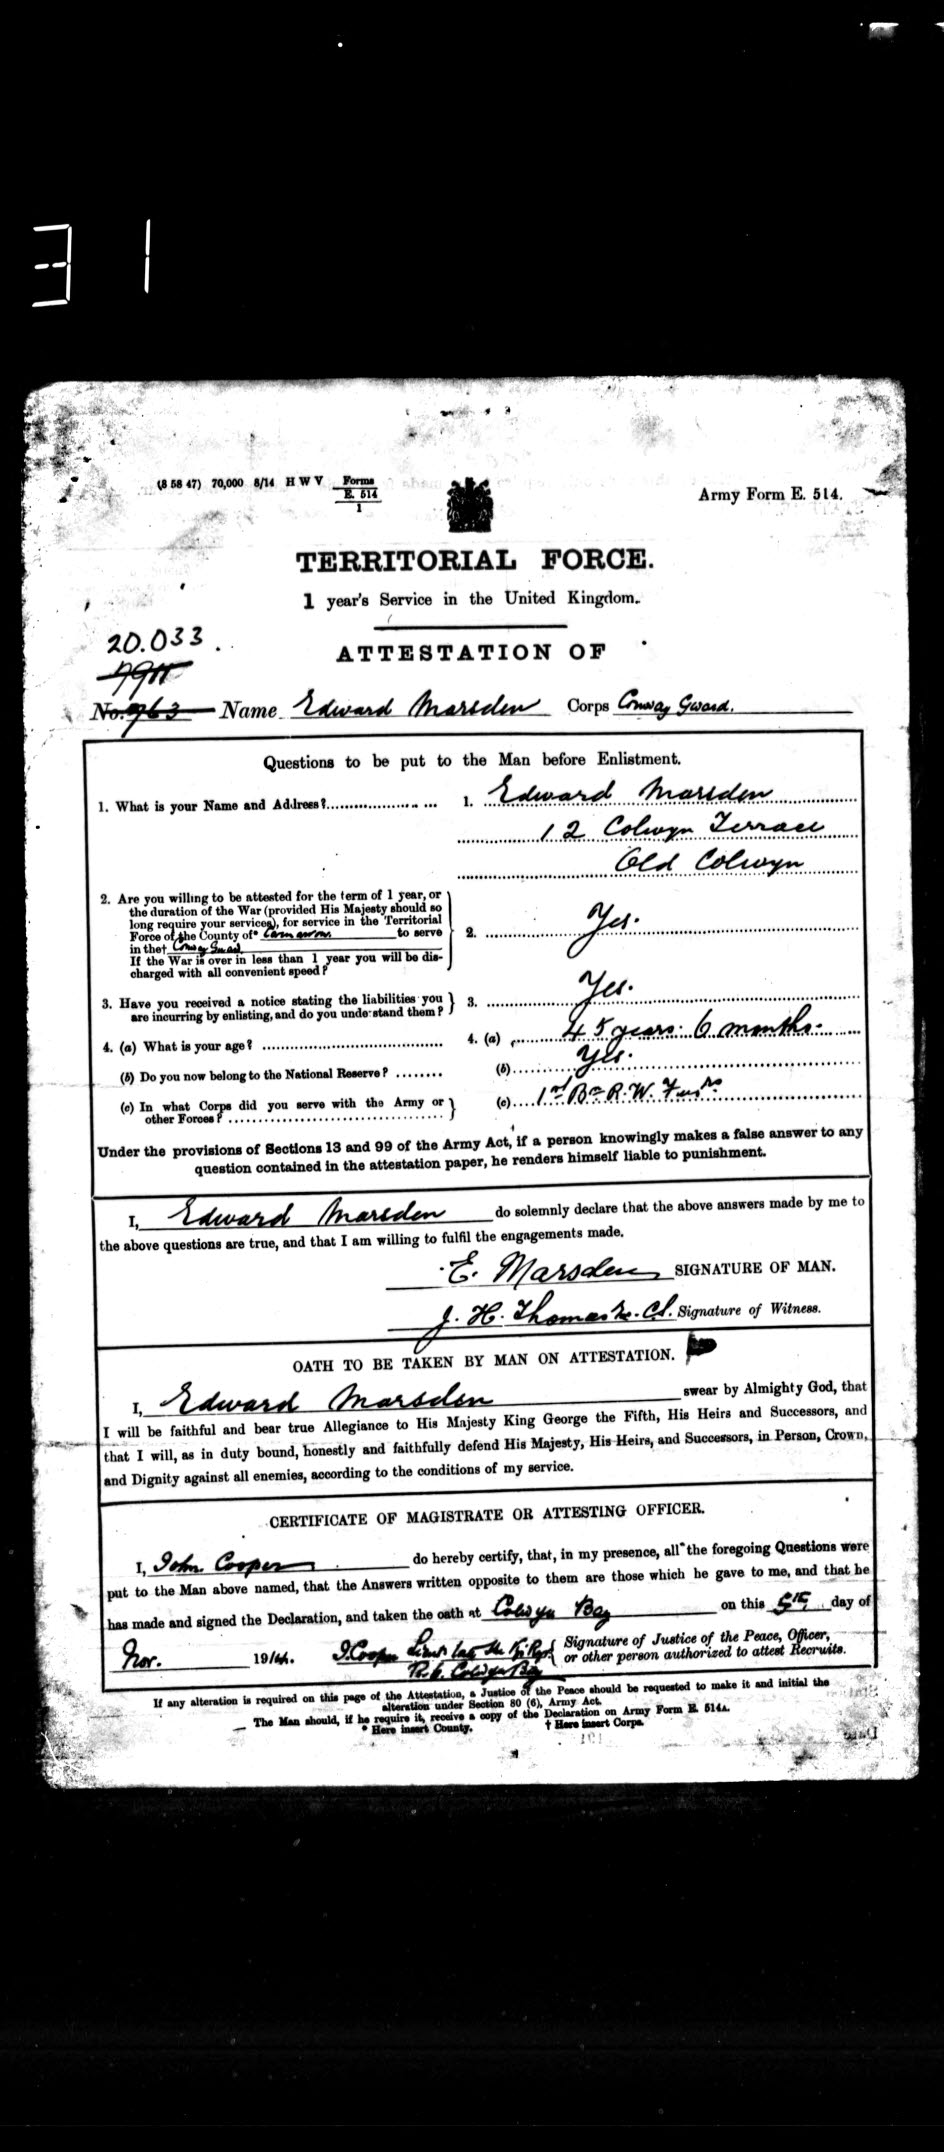 E 1
(8 58 47) 70,000 8/14 H W V Forms
E. 514
1
Army Form E. 514.
TERRITORIAL FORCE.
1 year's Service in the United Kingdom.
20.033.
ATTESTATION OF
No. 963 Name Edward Marsden Corps Conway Guard.
Questions to be put to the Man before Enlistment.
1. What is your Name and Address?
1. Edward Marsden
12 Colwyn Terrace
Old Colwyn
2. Are you willing to be attested for the term of 1 year, or
the duration of the War (provided His Majesty should so
long require your services), for service in the Territorial
Force of the County of* Carnarvon to serve
in the† Conway Guard
If the War is over in less than 1 year you will be dis-
charged with all convenient speed?
2. Yes.
3. Have you received a notice stating the liabilities you
are incurring by enlisting, and do you understand them?
3. Yes.
4. (a) What is your age?
4. (a) 45 years 6 months.
(b) Do you now belong to the National Reserve?
(b) Yes.
(c) In what Corps did you serve with the Army or
other Forces?
(c) 1st Bn R. W. Fusrs
Under the provisions of Sections 13 and 99 of the Army Act, if a person knowingly makes a false answer to any
question contained in the attestation paper, he renders himself liable to punishment.
I, Edward Marsden do solemnly declare that the above answers made by me to
the above questions are true, and that I am willing to fulfil the engagements made.
E. Marsden SIGNATURE OF MAN.
J. H. Thomas Signature of Witness.
OATH TO BE TAKEN BY MAN ON ATTESTATION.
I, Edward Marsden swear by Almighty God, that
I will be faithful and bear true Allegiance to His Majesty King George the Fifth, His Heirs and Successors, and
that I will, as in duty bound, honestly and faithfully defend His Majesty, His Heirs, and Successors, in Person, Crown,
and Dignity against all enemies, according to the conditions of my service.
CERTIFICATE OF MAGISTRATE OR ATTESTING OFFICER.
I, John Cooper do hereby certify, that, in my presence, all the foregoing Questions were
put to the Man above named, that the Answers written opposite to them are those which he gave to me, and that he
has made and signed the Declaration, and taken the oath at Colwyn Bay on this 5th day of
Nov. 1914. J Cooper
Colwyn Bay
Signature of Justice of the Peace, Officer,
or other person authorized to attest Recruits.
If any alteration is required on this page of the Attestation, a Justice of the Peace should be requested to make it and initial the
alteration under Section 80 (6), Army Act.
The Man should, if he require it, receive a copy of the Declaration on Army Form E. 514A.
* Here insert County. † Here insert Corps.